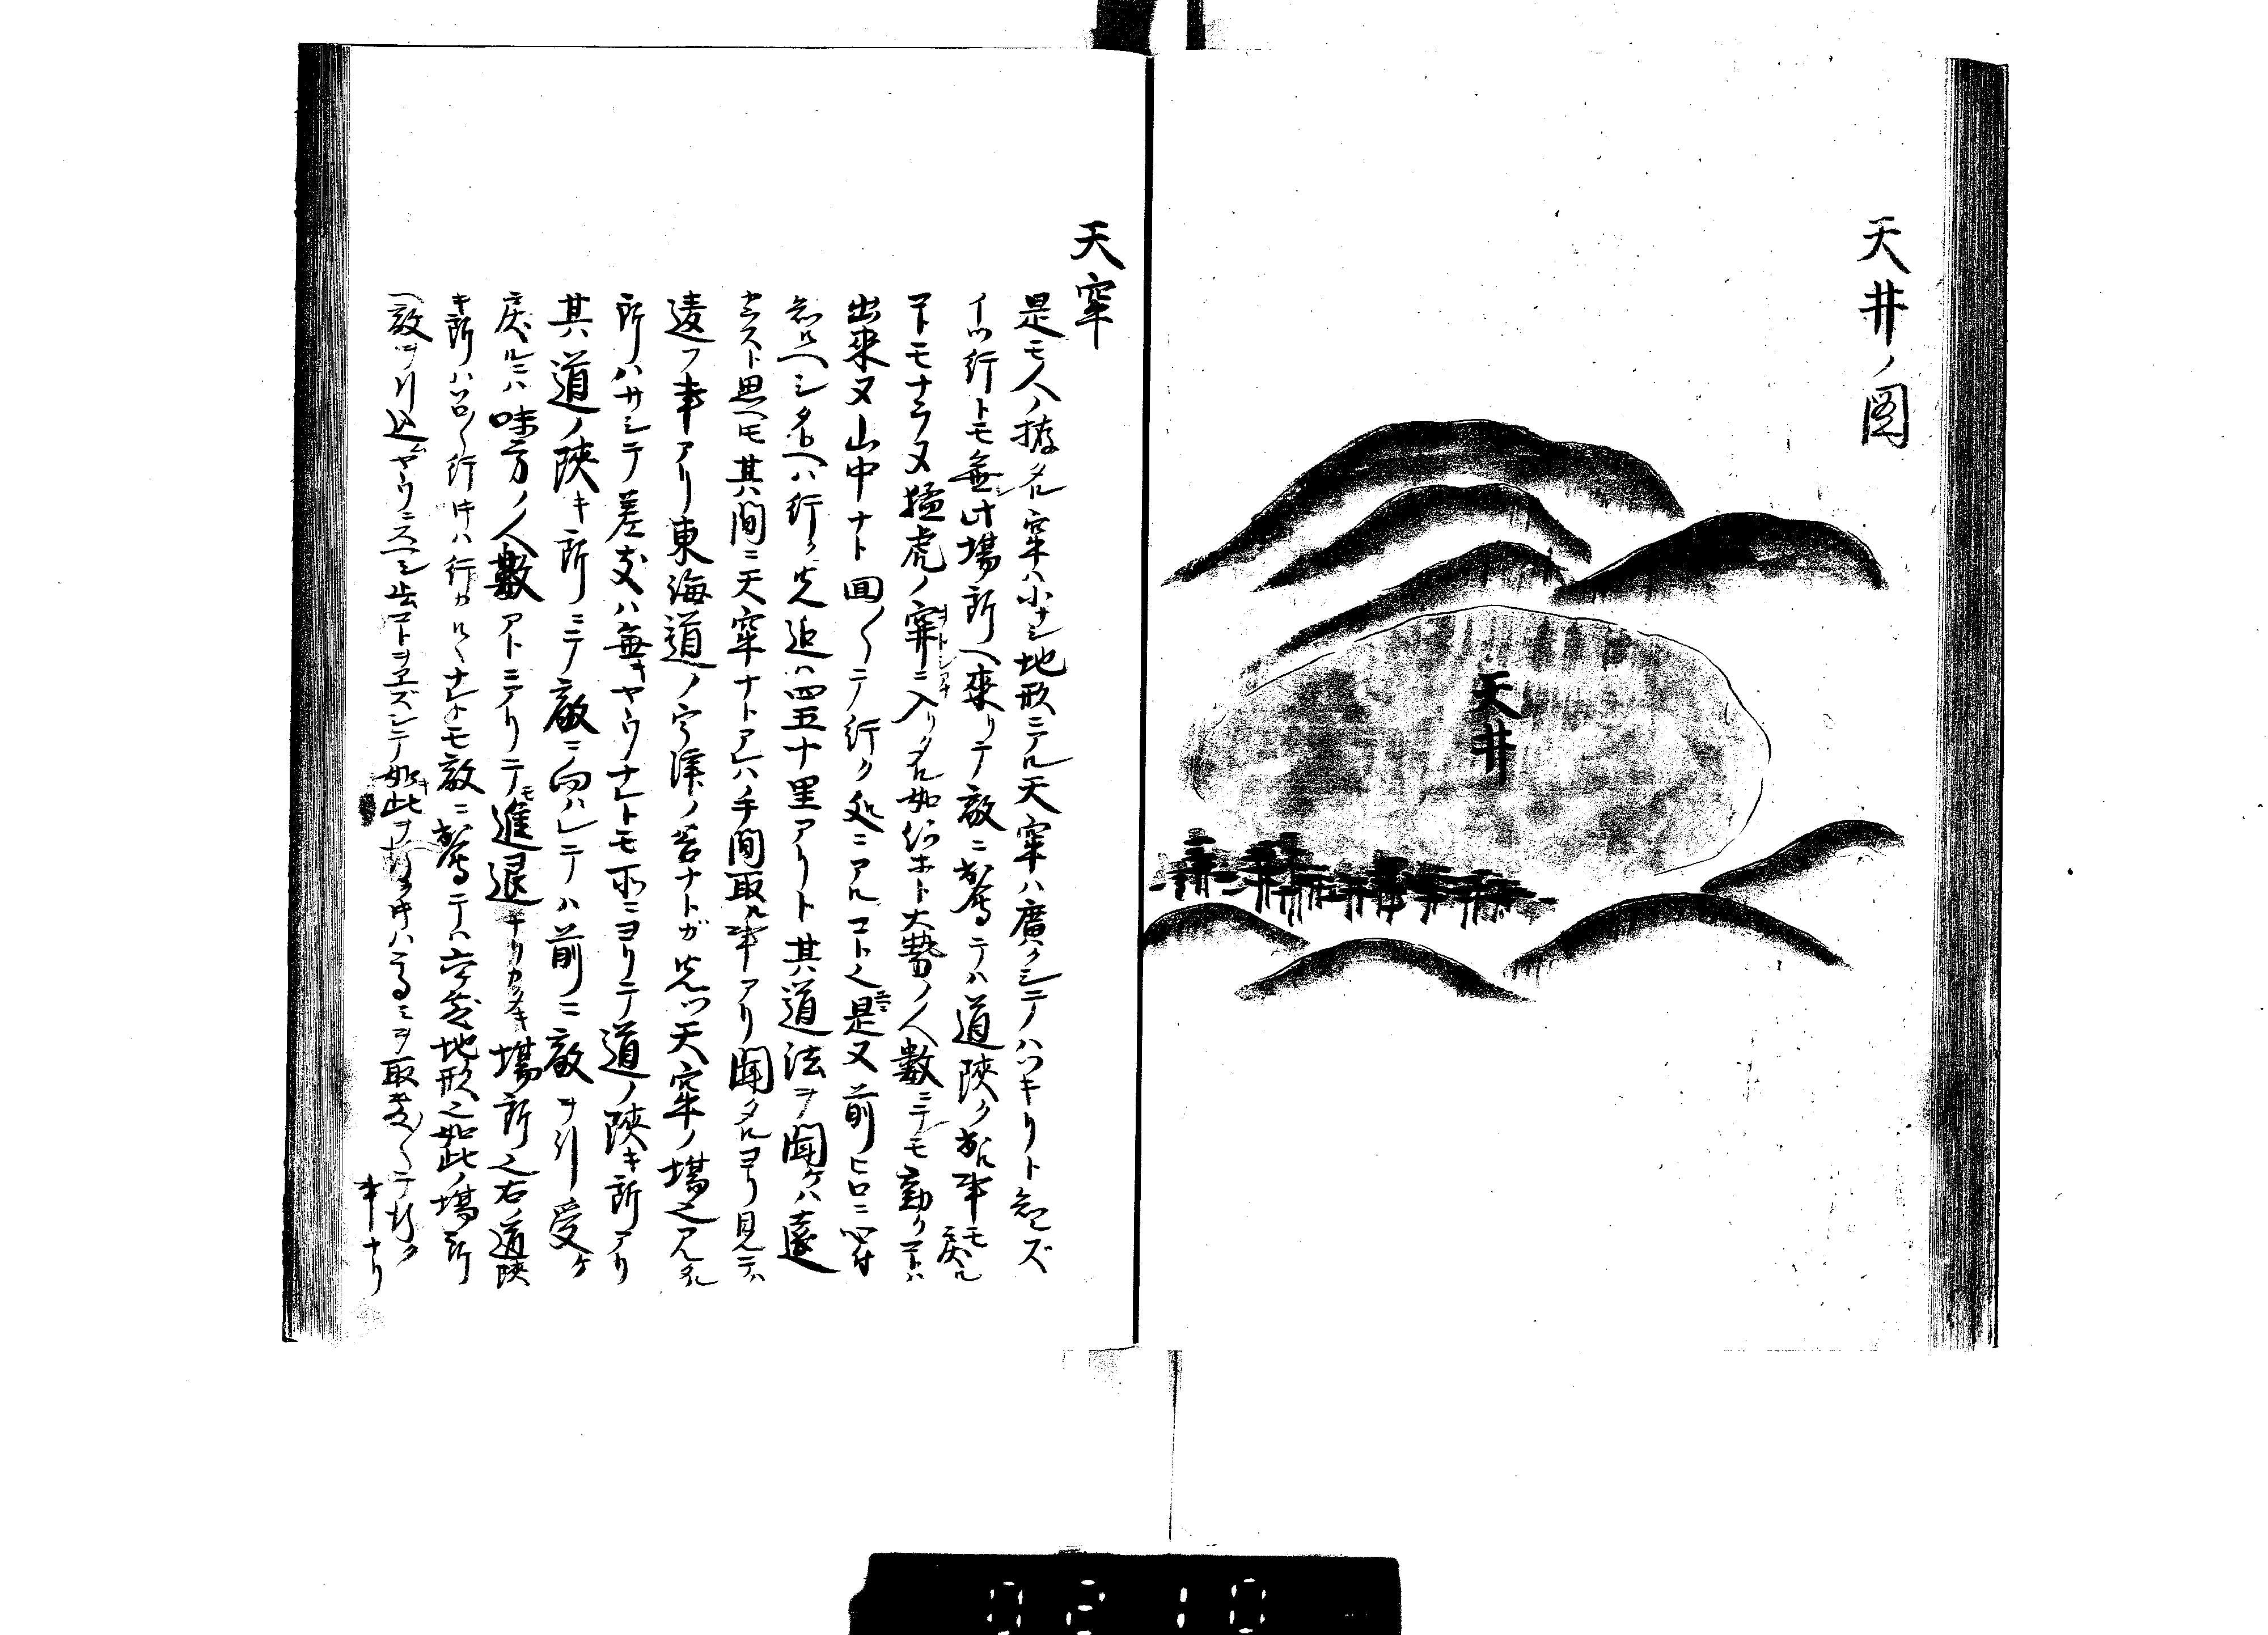 天井ノ図
天井
天穽
是モ人ノ掘タル穽ハ小ナシ地形ニアル天穽ハ廣クシテハツキリト知レズ
イツ行トモ無此場所ヘ來リテ敵ニ驚テハ道陜ク事モ戻ル
コトモナラヌ猛虎ノ穽ニ入リタル如何ホト大勢ノ人數ニテモ動クコトハ
ヲトシアナ
出來ヌ山中ナト回〳〵ニテ行ク処ニアルコト也是又前ヒロニ心付
知ルヘシタトヘハ行ク先迄ハ四五十里アリト其道法ヲ聞ケハ遠
カラスト思ヘモ其間ニ天穽ナトアレハ手間取ル事アリ聞タルヨリ見テハ
違フ事アリ東海道ノ宇津ノ谷ナトガ先ツ天穽ノ場也アレタル
所ハサシテ差支ハ無キヤウナレトモ所ニヨリテ道ノ陜キ所アリ
其道ノ陜キ所ニテ敵ニ向ハレテハ前ニ敵ヲ引受ケ
戻ルニハ味方ノ人數アトニアリテモ進退ナリカタキ場所也右ノ道陜
キ所ハソロ〳〵行時ハ行カルヽナレトモ敵ニ驚テハ六ケ敷地形也如此ノ場所
ヘ敵ヲ引込ムヤウニスヘシ止コトヲヱズシテ如此キヲ行時ハ高ミヲ取敷〳〵テ行ク
事ナリ
0210